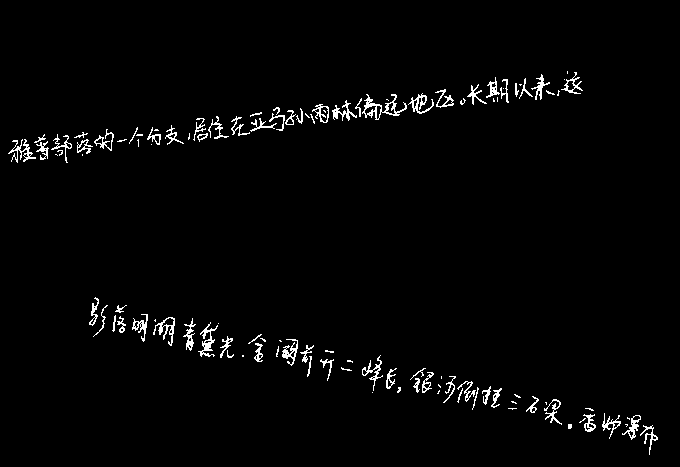 雅普部落的一个分支,居住在亚马孙雨林偏远地区。长期以来,这
影落明湖青黛光.金阙前开二峰长,银河倒挂三石梁。香炉瀑布